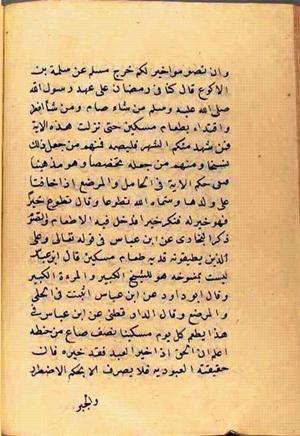 وان تصوموا خير لكم خرج مسلم عن سلمة بن
الاكوع قال كنا في رمضان على عهد رسول الله
صلى الله عليه وسلم من شاء صام ومن شاء افطر
وافتداء بطعام مسكين حتى نزلت هذه الاية
فمن شهد منكم الشهر فليصمه فمنهم من جعل ذلك
نسخا ومنهم من جعله مخصصا وهو مذهبنا
حكم الاية في الحامل والمرضع اذا خافتا
على ولدها وسماه الله تطوعا وقال تطوع خيرا
فهو خير له فنكر خيرا فدخل فيه الاطعام والصوم
ذكر البخاري عن ابن عباس في قوله تعالى وعلى
الذين يطيقونه فدية طعام مسكين قال ابن عباس
ليست بمنسوخه هو للشيخ الكبير والمرءة الكبير
وقال ابو داود عن ابن عباس اثبتت في الحبلى
والمرضع وقال الدار قطني عن ابن عباس في
هذا يطعم كل يوم مسكينا نصف صاع من حنطه
اعلم ان الحق اذا خير العبد فقد خيره فان
حقيقته العبودية فلا يصرف الا بحكم الاضطرار
والجبر